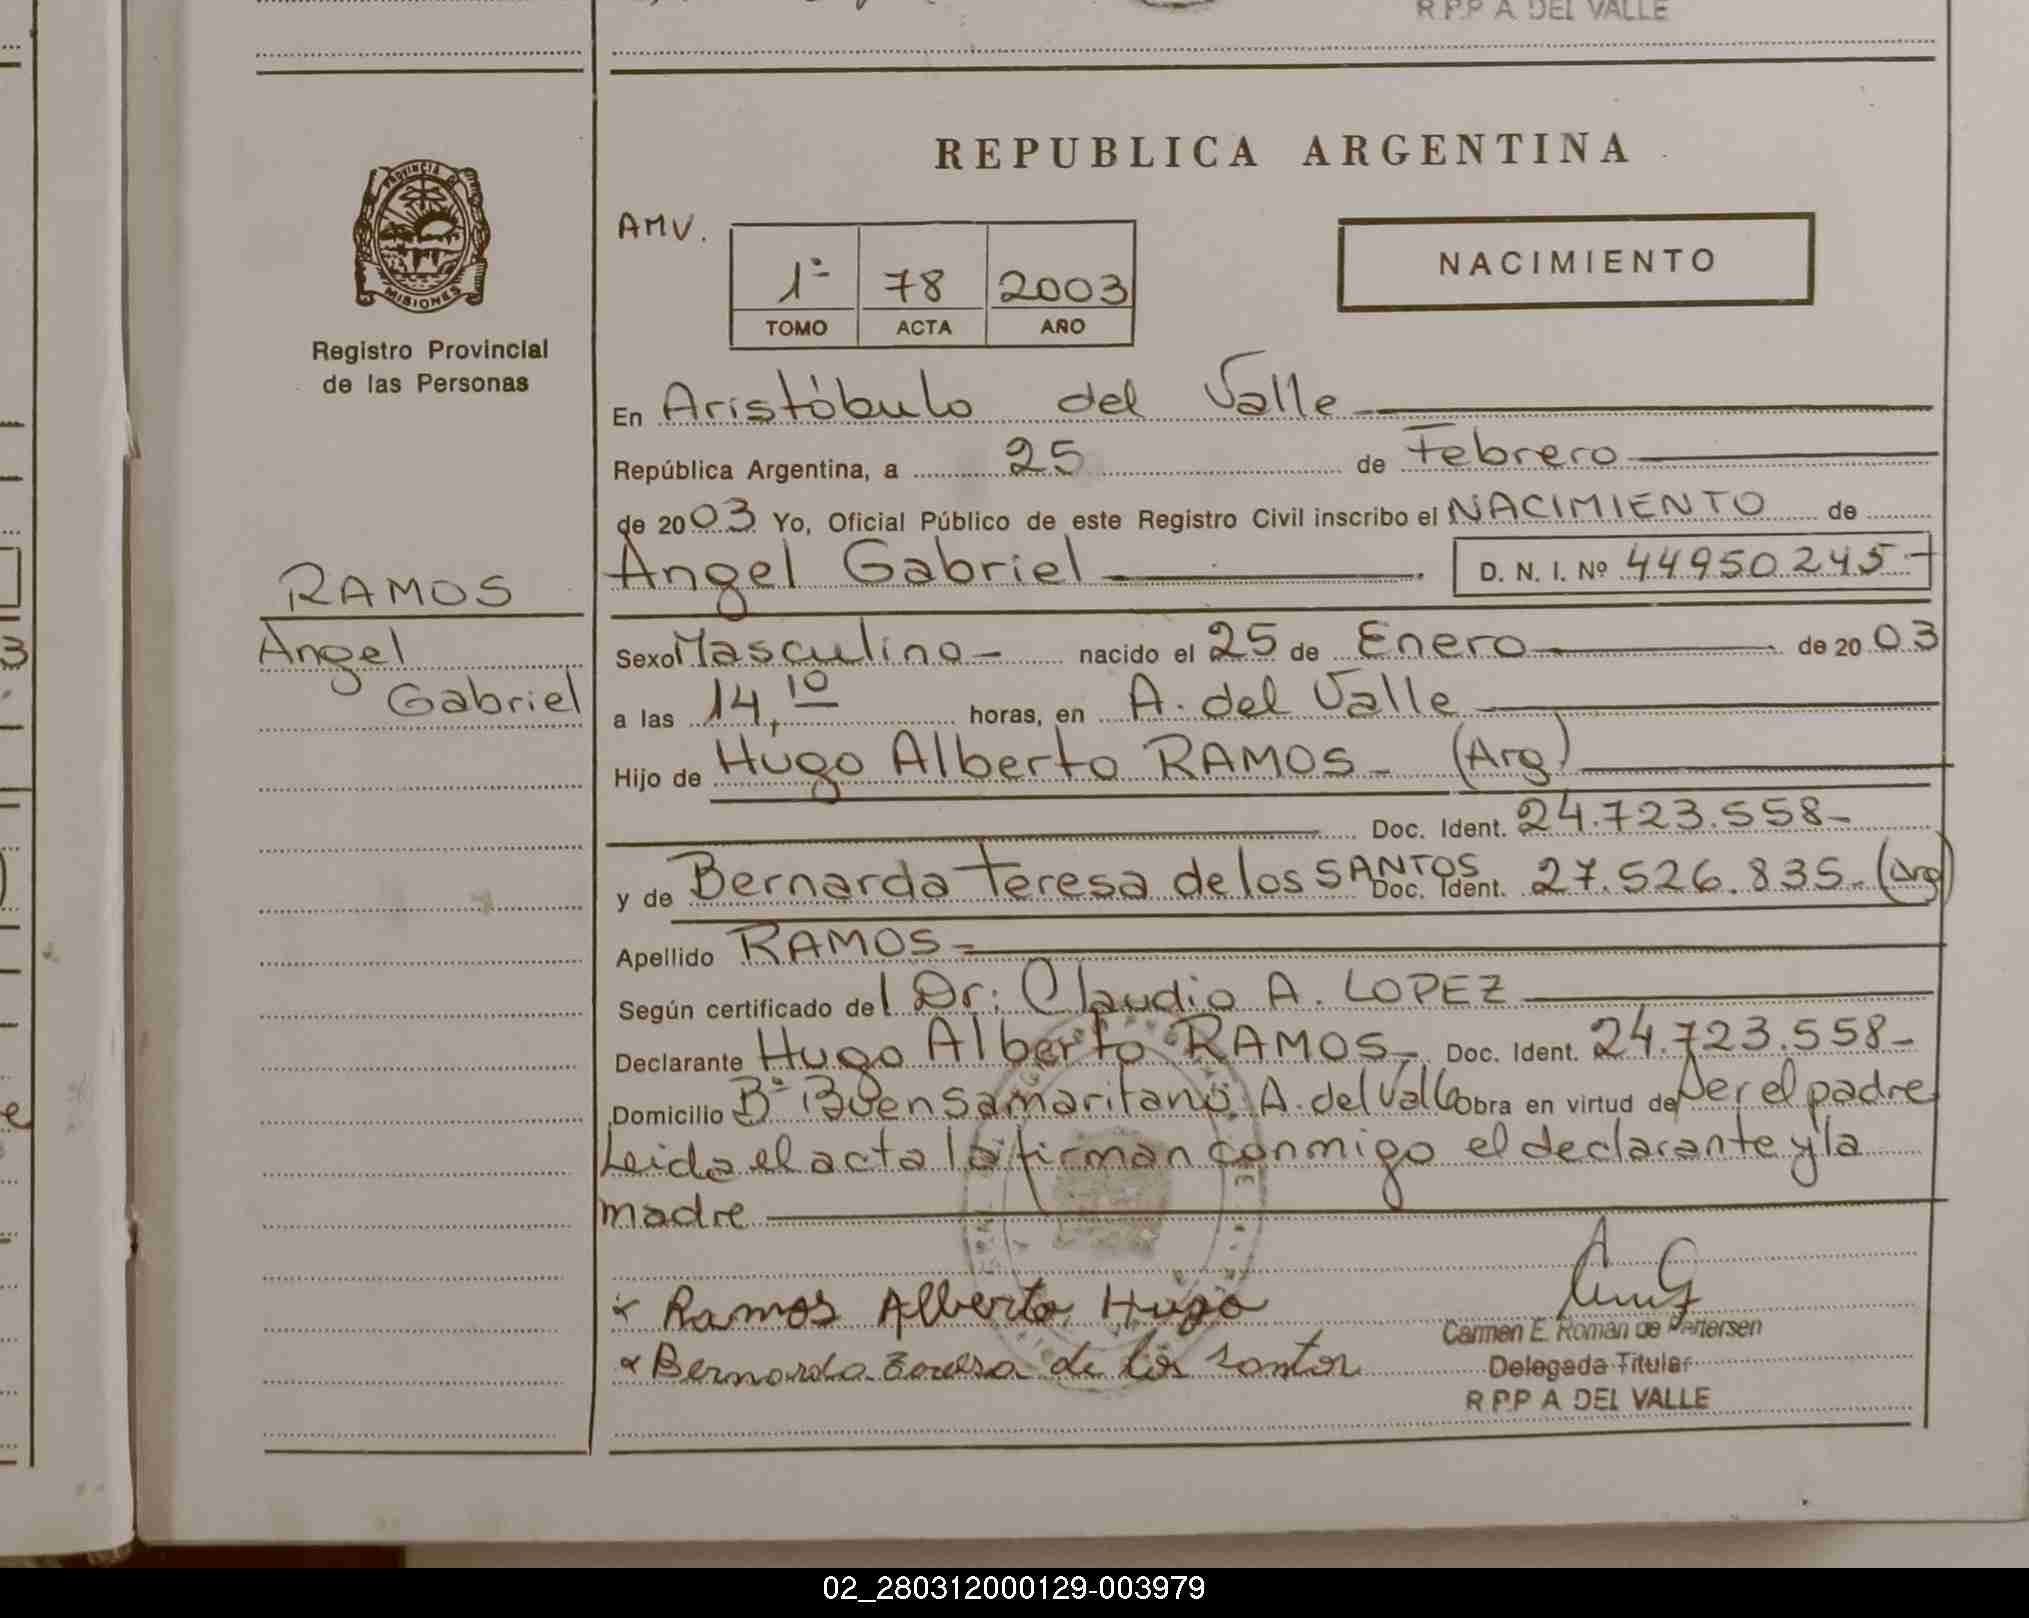 R.P.P A DEL VALLE
REPUBLICA ARGENTINA
PROVINCIA DE
MISIONES
Registro Provincial
de las Personas
AMV.
1º 78 2003
TOMO ACTA AÑO
NACIMIENTO
En Aristóbulo del Valle
República Argentina, a 25 de Febrero
de 2003 Yo, Oficial Público de este Registro Civil inscribo el NACIMIENTO de
Angel Gabriel D. N. I. Nº 44950245-
RAMOS
Angel
Gabriel
Sexo Masculino- nacido el 25 de Enero de 2003
a las 14,10 horas, en A. del Valle
Hijo de Hugo Alberto RAMOS- (Arg)
Doc. Ident. 24.723.558-
y de Bernarda Teresa de los SANTOS Doc. Ident. 27.526.835-(Arg)
Apellido RAMOS-
Según certificado del Dr: Claudio A. LOPEZ
Declarante Hugo Alberto RAMOS- Doc. Ident. 24.723.558-
Domicilio Bº Buen Samaritano. A. del Valle Obra en virtud de ser el padre
Leida el acta la firman conmigo el declarante y la
madre
x Ramos Alberto Hugo
x Bernarda Teresa de los santos
Carmen E. Roman de Pettersen
Delegada Titular
R.P.P A DEL VALLE
02_280312000129-003979